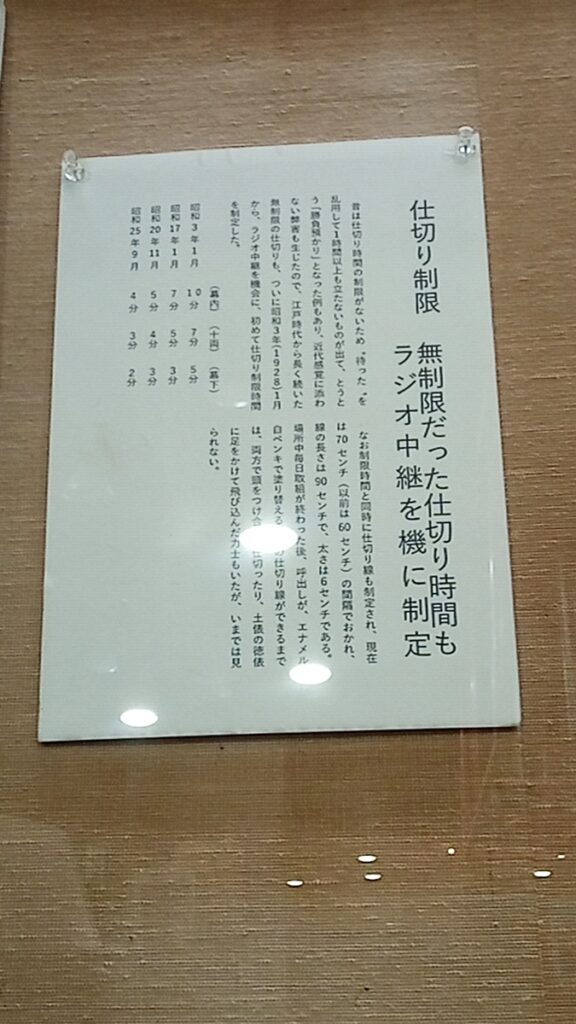 仕切り制限　無制限だった仕切り時間も
ラジオ中継を機に制定
昔は仕切り時間の制限がないため〝待った〟を
乱用して1時間以上も立たないものが出て、とうと
う「勝負預かり」となった例もあり、近代感覚に添わ
ない弊害も生じたので、江戸時代から長く続いた
無制限の仕切りも、ついに昭和3年(1928)1月
から、ラジオ中継を機会に、初めて仕切り制限時間
を制定した。
（幕内）（十両）（幕下）
昭和3年1月　10分　7分　5分
昭和17年1月　7分　5分　3分
昭和20年11月　5分　4分　3分
昭和25年9月　4分　3分　2分
なお制限時間と同時に仕切り線も制定され、現在
は70センチ（以前は60センチ）の間隔でおかれ、
線の長さは90センチで、太さは6センチである。
場所中毎日取組が終わった後、呼出しが、エナメル
白ペンキで塗り替える。の仕切り線ができるまで
は、両方で頭をつけ合仕切ったり、土俵の徳俵
に足をかけて飛び込んだ力士もいたが、いまでは見
られない。